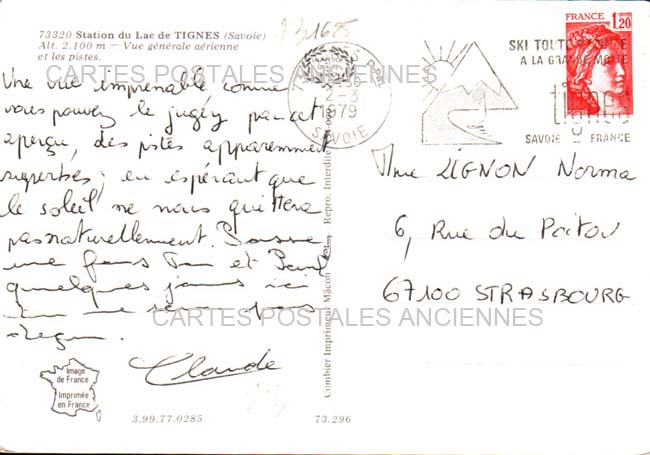 73320 Station du Lac de TIGNES (Savoie)
Alt. 2.100 m — Vue générale aérienne
et les pistes.
CARTES POSTALES ANCIENNES
Une vue imprenable comme
vous pouvez le juger par cet
aperçu, des pistes apparemment
superbes; en espérant que
le soleil ne nous quittera
pas naturellement.
une fous et
quelques jours ici
ne
CARTES POSTALES ANCIENNES
Claude
Image
de France
Imprimée
en France
3.99.77.0285
73.296
Combier Imprimeur Mâcon
Repro. Interdite
1979
SAVOIE
SKI TOUTE
A LA GRANDE MOTTE
tignes
SAVOIE - FRANCE
FRANCE
1,20
Mme LIGNON Norma
6, Rue du Poitou
67100 STRASBOURG